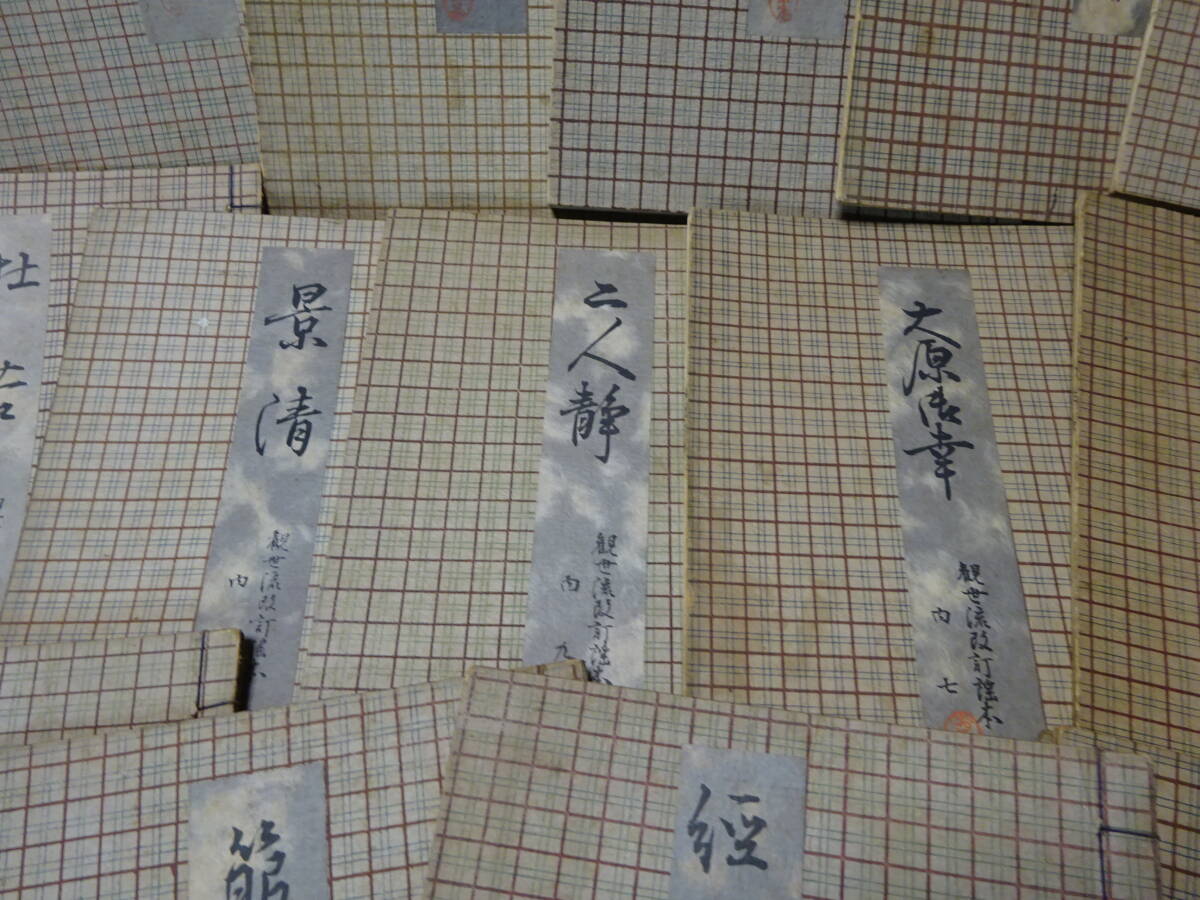 大原御幸
観世流改訂謡本
内 七
二人静
観世流改訂謡本
内 九
景清
観世流改訂謡本
内
杜若
經